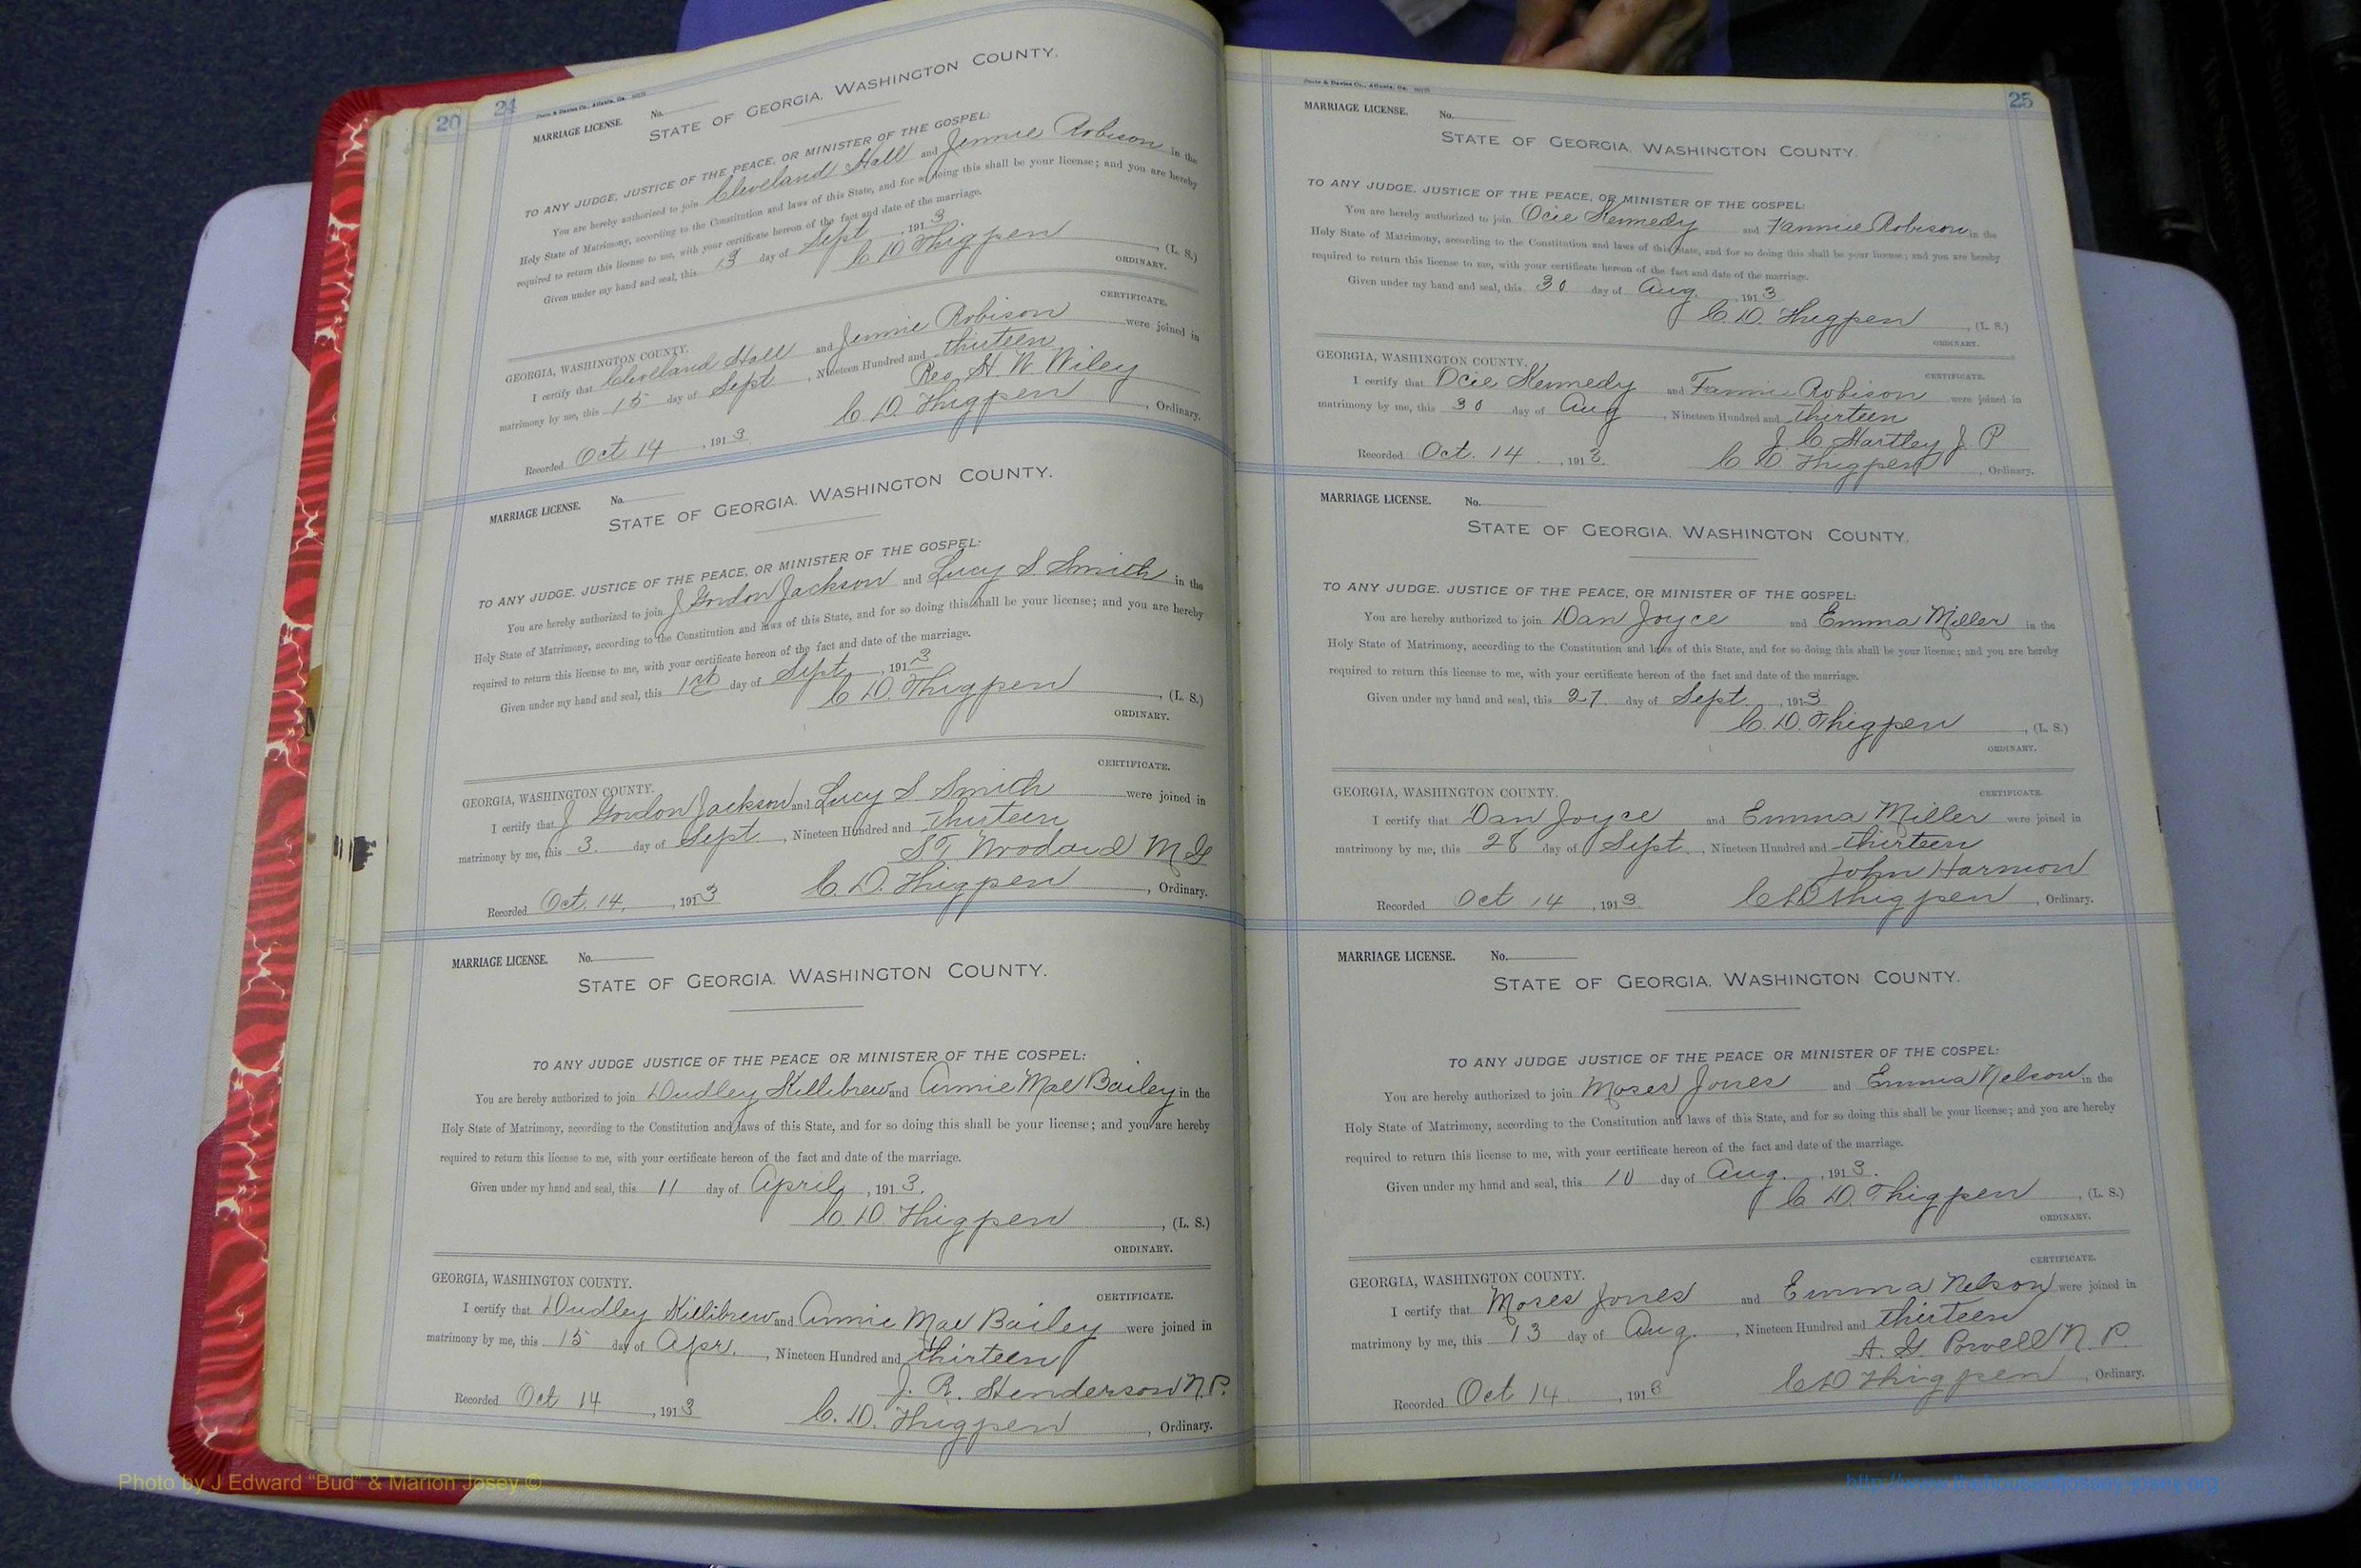 20
24
MARRIAGE LICENSE. No.
STATE OF GEORGIA, WASHINGTON COUNTY.
TO ANY JUDGE, JUSTICE OF THE PEACE, OR MINISTER OF THE GOSPEL:
You are hereby authorized to join Cleveland Hall and Jennie Robison in the
Holy State of Matrimony, according to the Constitution and laws of this State, and for so doing this shall be your license; and you are hereby
required to return this license to me, with your certificate hereon of the fact and date of the marriage.
Given under my hand and seal, this 13 day of Sept, 1913
C D Thigpen, (L. S.)
ORDINARY.
CERTIFICATE.
GEORGIA, WASHINGTON COUNTY.
I certify that Cleveland Hall and Jennie Robison were joined in
matrimony by me, this 15 day of Sept, Nineteen Hundred and thirteen
Rev H. W. Wiley
Recorded Oct 14, 1913 C D. Thigpen, Ordinary.
MARRIAGE LICENSE. No.
STATE OF GEORGIA, WASHINGTON COUNTY.
TO ANY JUDGE, JUSTICE OF THE PEACE, OR MINISTER OF THE GOSPEL:
You are hereby authorized to join J Gordon Jackson and Lucy S Smith in the
Holy State of Matrimony, according to the Constitution and laws of this State, and for so doing this shall be your license; and you are hereby
required to return this license to me, with your certificate hereon of the fact and date of the marriage.
Given under my hand and seal, this 1st day of Sept, 1913
C D. Thigpen, (L. S.)
ORDINARY.
CERTIFICATE.
GEORGIA, WASHINGTON COUNTY.
I certify that J Gordon Jackson and Lucy S Smith were joined in
matrimony by me, this 3. day of Sept, Nineteen Hundred and Thirteen
S T. Woodard M G
Recorded Oct. 14, 1913 C. D. Thigpen, Ordinary.
MARRIAGE LICENSE. No.
STATE OF GEORGIA, WASHINGTON COUNTY.
TO ANY JUDGE JUSTICE OF THE PEACE OR MINISTER OF THE GOSPEL:
You are hereby authorized to join Dudley Killibrew and Annie Mae Bailey in the
Holy State of Matrimony, according to the Constitution and laws of this State, and for so doing this shall be your license; and you are hereby
required to return this license to me, with your certificate hereon of the fact and date of the marriage.
Given under my hand and seal, this 11 day of April, 1913.
C. D. Thigpen, (L. S.)
ORDINARY.
GEORGIA, WASHINGTON COUNTY.
CERTIFICATE.
I certify that Dudley Killibrew and Annie Mae Bailey were joined in
matrimony by me, this 15 day of Apr., Nineteen Hundred and thirteen
J. R. Henderson N.P.
Recorded Oct 14, 1913 C. D. Thigpen, Ordinary.
25
MARRIAGE LICENSE. No.
STATE OF GEORGIA, WASHINGTON COUNTY.
TO ANY JUDGE, JUSTICE OF THE PEACE, OR MINISTER OF THE GOSPEL:
You are hereby authorized to join Ocie Kennedy and Fannie Robison in the
Holy State of Matrimony, according to the Constitution and laws of this State, and for so doing this shall be your license; and you are hereby
required to return this license to me, with your certificate hereon of the fact and date of the marriage.
Given under my hand and seal, this 30 day of Aug., 1913
C. D. Thigpen, (L. S.)
ORDINARY.
GEORGIA, WASHINGTON COUNTY.
CERTIFICATE.
I certify that Ocie Kennedy and Fannie Robison were joined in
matrimony by me, this 30 day of Aug, Nineteen Hundred and thirteen
J C Hartley J. P
Recorded Oct. 14, 1913. C D. Thigpen, Ordinary.
MARRIAGE LICENSE. No.
STATE OF GEORGIA, WASHINGTON COUNTY.
TO ANY JUDGE, JUSTICE OF THE PEACE, OR MINISTER OF THE GOSPEL:
You are hereby authorized to join Dan Joyce and Emma Miller in the
Holy State of Matrimony, according to the Constitution and laws of this State, and for so doing this shall be your license; and you are hereby
required to return this license to me, with your certificate hereon of the fact and date of the marriage.
Given under my hand and seal, this 27. day of Sept., 1913
C. D. Thigpen, (L. S.)
ORDINARY.
GEORGIA, WASHINGTON COUNTY.
CERTIFICATE.
I certify that Dan Joyce and Emma Miller were joined in
matrimony by me, this 28 day of Sept., Nineteen Hundred and thirteen
John Harmon
Recorded Oct 14, 1913. C D Thigpen, Ordinary.
MARRIAGE LICENSE. No.
STATE OF GEORGIA, WASHINGTON COUNTY.
TO ANY JUDGE JUSTICE OF THE PEACE OR MINISTER OF THE GOSPEL:
You are hereby authorized to join Moses Jones and Emma Nelson in the
Holy State of Matrimony, according to the Constitution and laws of this State, and for so doing this shall be your license; and you are hereby
required to return this license to me, with your certificate hereon of the fact and date of the marriage.
Given under my hand and seal, this 10 day of Aug., 1913.
C D. Thigpen, (L. S.)
ORDINARY.
CERTIFICATE.
GEORGIA, WASHINGTON COUNTY.
I certify that Moses Jones and Emma Nelson were joined in
matrimony by me, this 13 day of Aug., Nineteen Hundred and thirteen
A. G. Powell N. P.
Recorded Oct 14., 1913 C D Thigpen, Ordinary.
Photo by J Edward "Bud" & Marion Josey ©